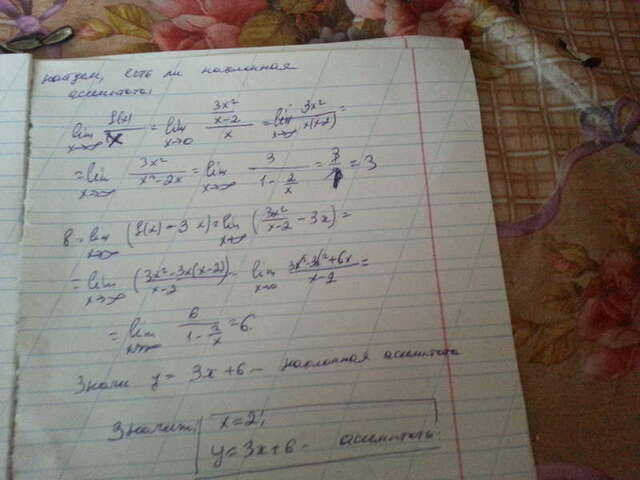 найдем, есть ли наклонная
асимптота:
lim x→∞ f(x)/x = lim x→∞ (3x²/(x-2))/x = lim x→∞ 3x²/(x(x-2)) =
= lim x→∞ 3x²/(x²-2x) = lim x→∞ 3/(1-2/x) = 3/1 = 3
b = lim x→∞ (f(x) - 3x) = lim x→∞ (3x²/(x-2) - 3x) =
= lim x→∞ (3x²-3x(x-2))/(x-2) = lim x→∞ (3x²-3x²+6x)/(x-2) =
= lim x→∞ 6/(1-2/x) = 6.
Значи y = 3x+6 - наклонная асимптота
Значит, x=2;
y=3x+6 - асимптоты.